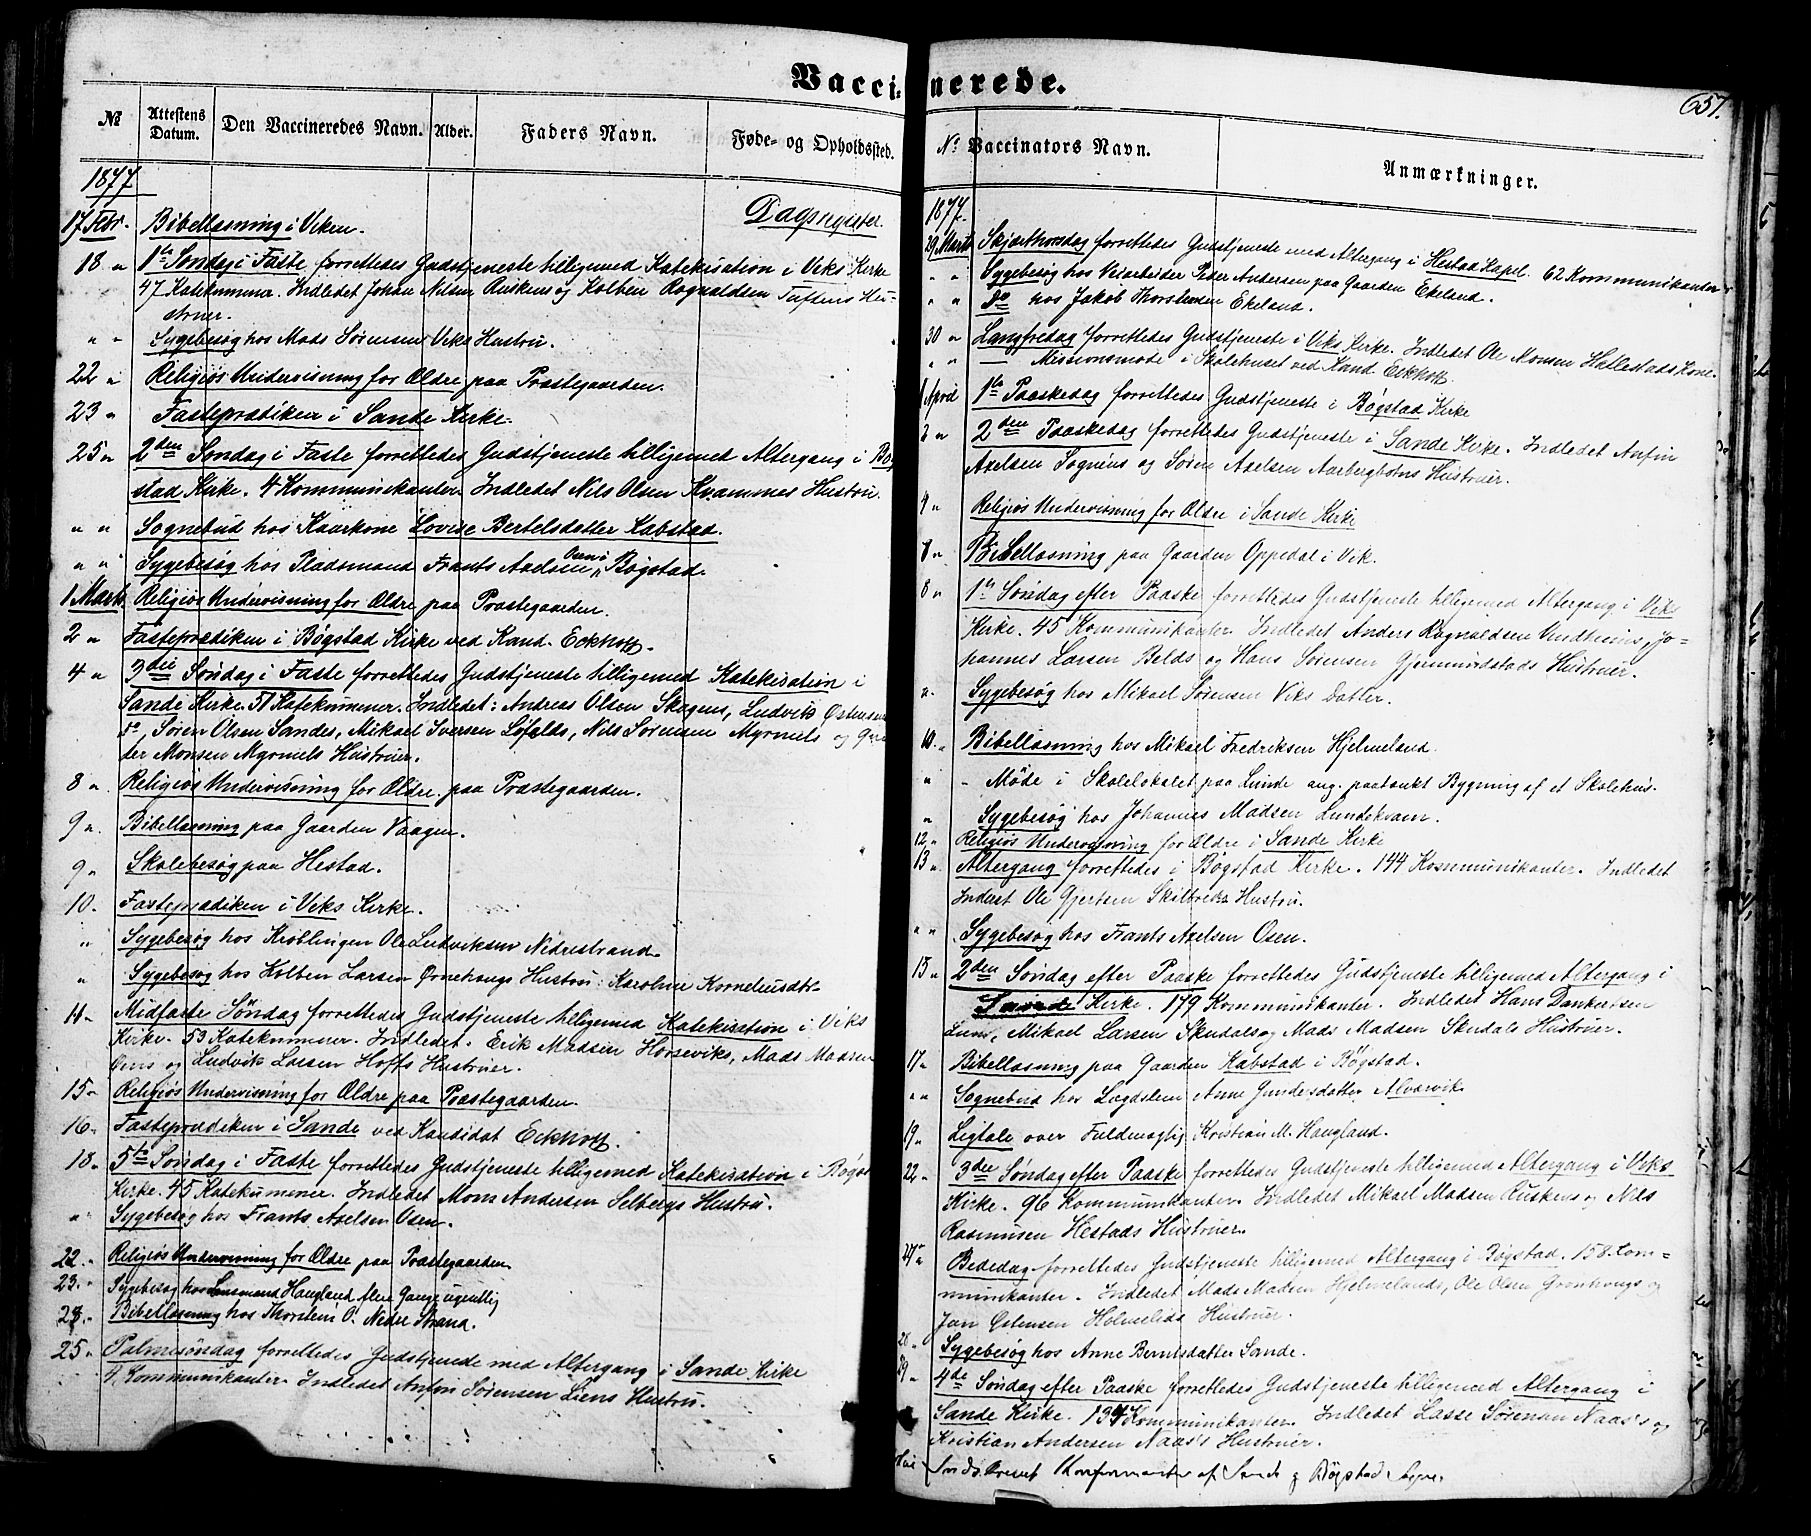 Vaccinerede.
657.
№ Attestens Datum. Den Vaccineredes Navn. Alder. Faders Navn. Føde- og Opholdssted.
1877
Dagsregister.
17 Febr. Bibellæsning i Viken.
18 " 1ste Søndag i Faste forrettedes Gudstjeneste tilligemed Katekisation i Viks Kirke
47 Katekumener. Indledet Johan Nilsen Ruskens og Kolben Rognaldsen Tuftens Hu-
struer.
" " Sygebesøg hos Mads Sørensen Viks Hustru.
22 " Religiøs Undervisning for Ældre paa Præstegaarden.
23 " Fasteprædiken i Sande Kirke.
25 " 2den Søndag i Faste forrettedes Gudstjeneste tilligemed Altergang i Bøg
stad Kirke. 4 Kommunikanter Indledet Nils Olsen Kvammes Hustru.
" " Sognebud hos Kaarkone Lovise Bertelsdatter Kabstad.
" " Sygebesøg hos Pladsmand Frants Axelsen Osen i Bøgstad.
1 Marts Religiøs Undervisning for Ældre paa Præstegaarden.
2 " Fasteprædiken i Bøgstad Kirke ved Kand. Eckhoff.
4 " 3die Søndag i Faste forrettedes Gudstjeneste tilligemed Katekisation i
Sande Kirke. 51 Katekumener. Indledet: Andreas Olsen Skogens, Ludvik Østensen
Søren Olsen Sandes, Mikael Iversen Løfolds, Nils Sørensen Myrmels og
der Monsen Myrmels Hustruer.
8 " Religiøs Undervisning for Ældre paa Præstegaarden.
9 " Bibellæsning paa Gaarden Vaagen.
9 " Skolebesøg paa Hestad.
10. Fasteprædiken i Viks Kirke.
" Sygebesøg hos Krøblingen Ole Ludviksen Nedrestrand.
" Sygebesøg hos Kolben Larsen Ørnehougs Hustru: Karoline Korneliusdtr.
11 " Midfaste Søndag forrettedes Gudstjeneste tilligemed Katekisation i Viks
Kirke. 53 Katekumener. Indledet. Erik Madsen Horseviks, Mads Madsen
og Ludvik Larsen Hoffs Hustruer.
15 " Religiøs Undervisning for Ældre paa Præstegaarden.
16 " Fasteprædiken i Sande ved Kandidat Eckhoff.
18 " 5te Søndag i Faste forrettedes Gudstjeneste tilligemed Katekisation i Bøgst
Kirke. 45 Katekumener. Indledet Mons Andersen Selbergs Hustru.
" " Sygebesøg hos Frants Axelsen Osen.
22 " Religiøs Undervisning for Ældre paa Præstegaarden
23. " Sygebesøg hos Lensmand Haugland flere Gange ugentlig
Bibellæsning hos Thorstein O. Nedre Strand.
25 " Palmesøndag forrettedes Gudstjeneste med Altergang i Sande Kirke
Kommunikanter. Indledet Anfin Sørensen Liens Hustru.
№ Vaccinators Navn. Anmærkninger.
1877.
29 Marts Skjærthorsdag forrettedes Gudstjeneste med Altergang i Hestad Kapel. 62 Kommunikanter
" " Sygebesøg hos Veiarbeider Peder Andersen paa Gaarden Ekeland.
" " Do hos Jakob Thorstensen Ekeland.
30 " Langfredag forrettedes Gudstjeneste i Viks Kirke. Indledet Ole Monsen Hallestads Kone.
" " Missionsmøde i Skolehuset ved Kand. Eckhoff.
1 April 1ste Paaskedag forrettedes Gudstjeneste i Bøgstad Kirke
2 " 2den Paaskedag forrettedes Gudstjeneste i Sande Kirke. Indledet Anfin
Axelsen Sognens og Søren Axelsen Aarbergbotns Hustruer.
4 " Religiøs Undervisning for Ældre i Sande Kirke
" Bibellæsning paa Gaarden Oppedal i Vik.
8 " 1ste Søndag efter Paaske forrettedes Gudstjeneste tilligemed Altergang i Viks
Kirke. 45 Kommunikanter Indledet Anders Rognaldsen Undheims, Jo-
hannes Larsen Belds og Hans Sørensen Gjermundstads Hustruer.
" Sygebesøg hos Mikael Sørensen Viks Datter.
10. " Bibellæsning hos Mikael Fredriksen Hjelmeland.
" - Møde i Skolelokalet paa Lunde ang. paatænkt Bygning af et Skolehus.
" Sygebesøg hos Johannes Madsen Lundekvam.
12 " Religiøs Undervisning for Ældre i Sande Kirke
13 " Altergang forrettedes i Bøgstad Kirke. 144 Kommunikanter. Indledet
Inderst Ole Gjertsen Skilbreds Hustru.
" " Sygebesøg hos Frants Axelsen Osen.
15 " 2den Søndag efter Paaske forrettedes Gudstjeneste tilligemed Altergang i
Sande Kirke. 179 Kommunikanter. Indledet Hans Dankertsen
Lunr, Mikael Larsen Skudals og Mads Madsen Skudals Hustruer.
17 " Bibellæsning paa Gaarden Kabstad i Bøgstad.
" " Sognebud hos Lægdslem Anne Gundersdatter Alværvik
19 " Ligtale over Fuldmægtig Kristian M. Haugland.
22 " 3die Søndag efter Paaske forrettedes Gudstjeneste tilligemed Altergang i Viks
Kirke. 96 Kommunikanter. Indledet Mikael Madsen Ruskens og Nils
Rasmusen Hestads Hustruer.
27 " Bededag forrettedes Gudstjeneste tilligemed Altergang i Bøgstad. 158 Kom-
munikanter. Indledet Mads Madsen Hjelmelands, Ole Olsen Grønhougs og
Jan Ostensen Holmelids Hustruer.
28 " Sygebesøg hos Anne Berntsdatter Sande.
29 " 4de Søndag efter Paaske forrettedes Gudstjeneste tilligemed Altergang i
Sande Kirke. 134 Kommunikanter. Indledet Lasse Sørensen Naas's og
Kristian Andersen Naas's Hustruer.
Mai Konfirmanter af Sande og Bøgstad Sogne.